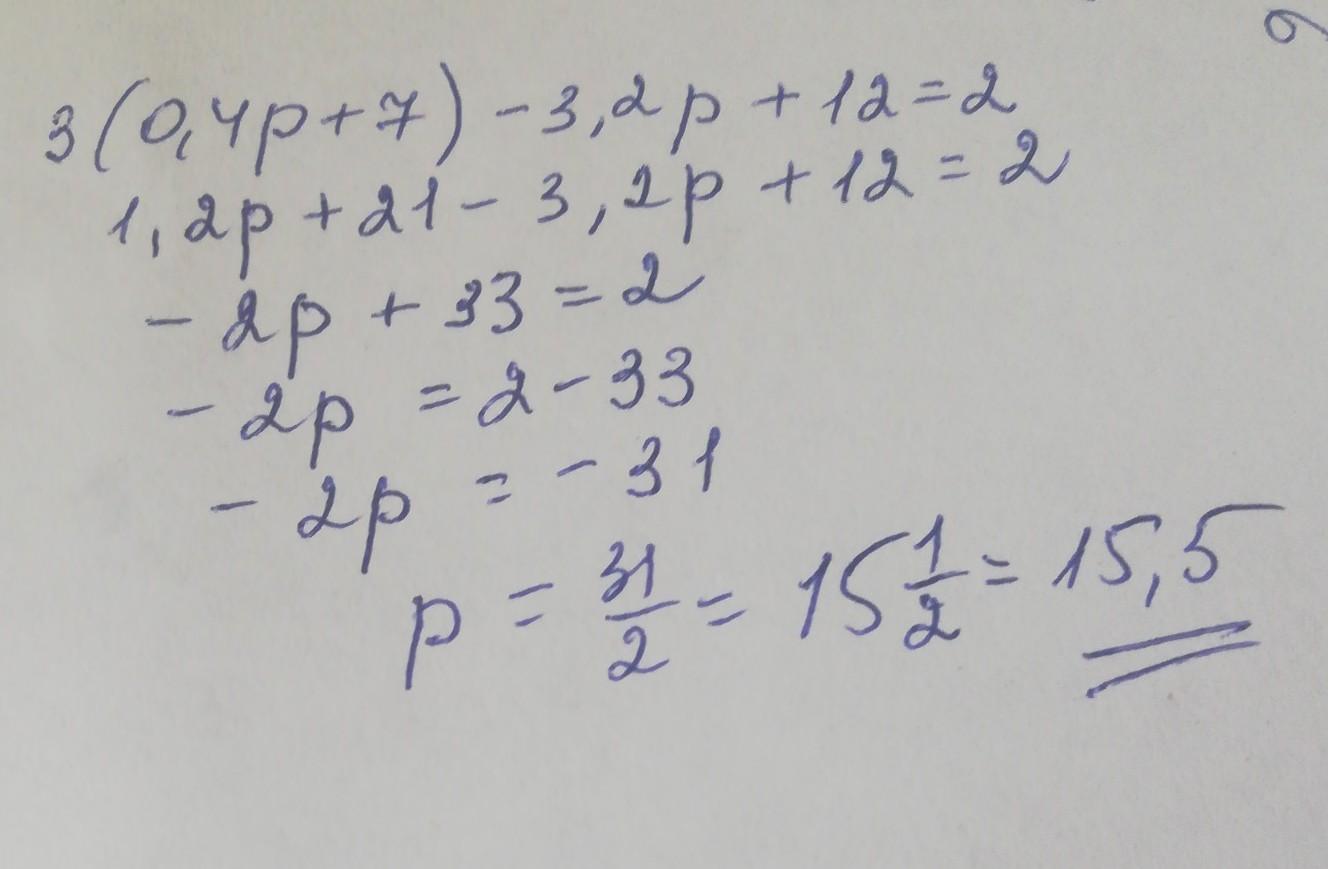 3(0,4p+7)-3,2p+12=2
1,2p+21-3,2p+12=2
-2p+33=2
-2p=2-33
-2p=-31
p=31/2=15 1/2=15,5